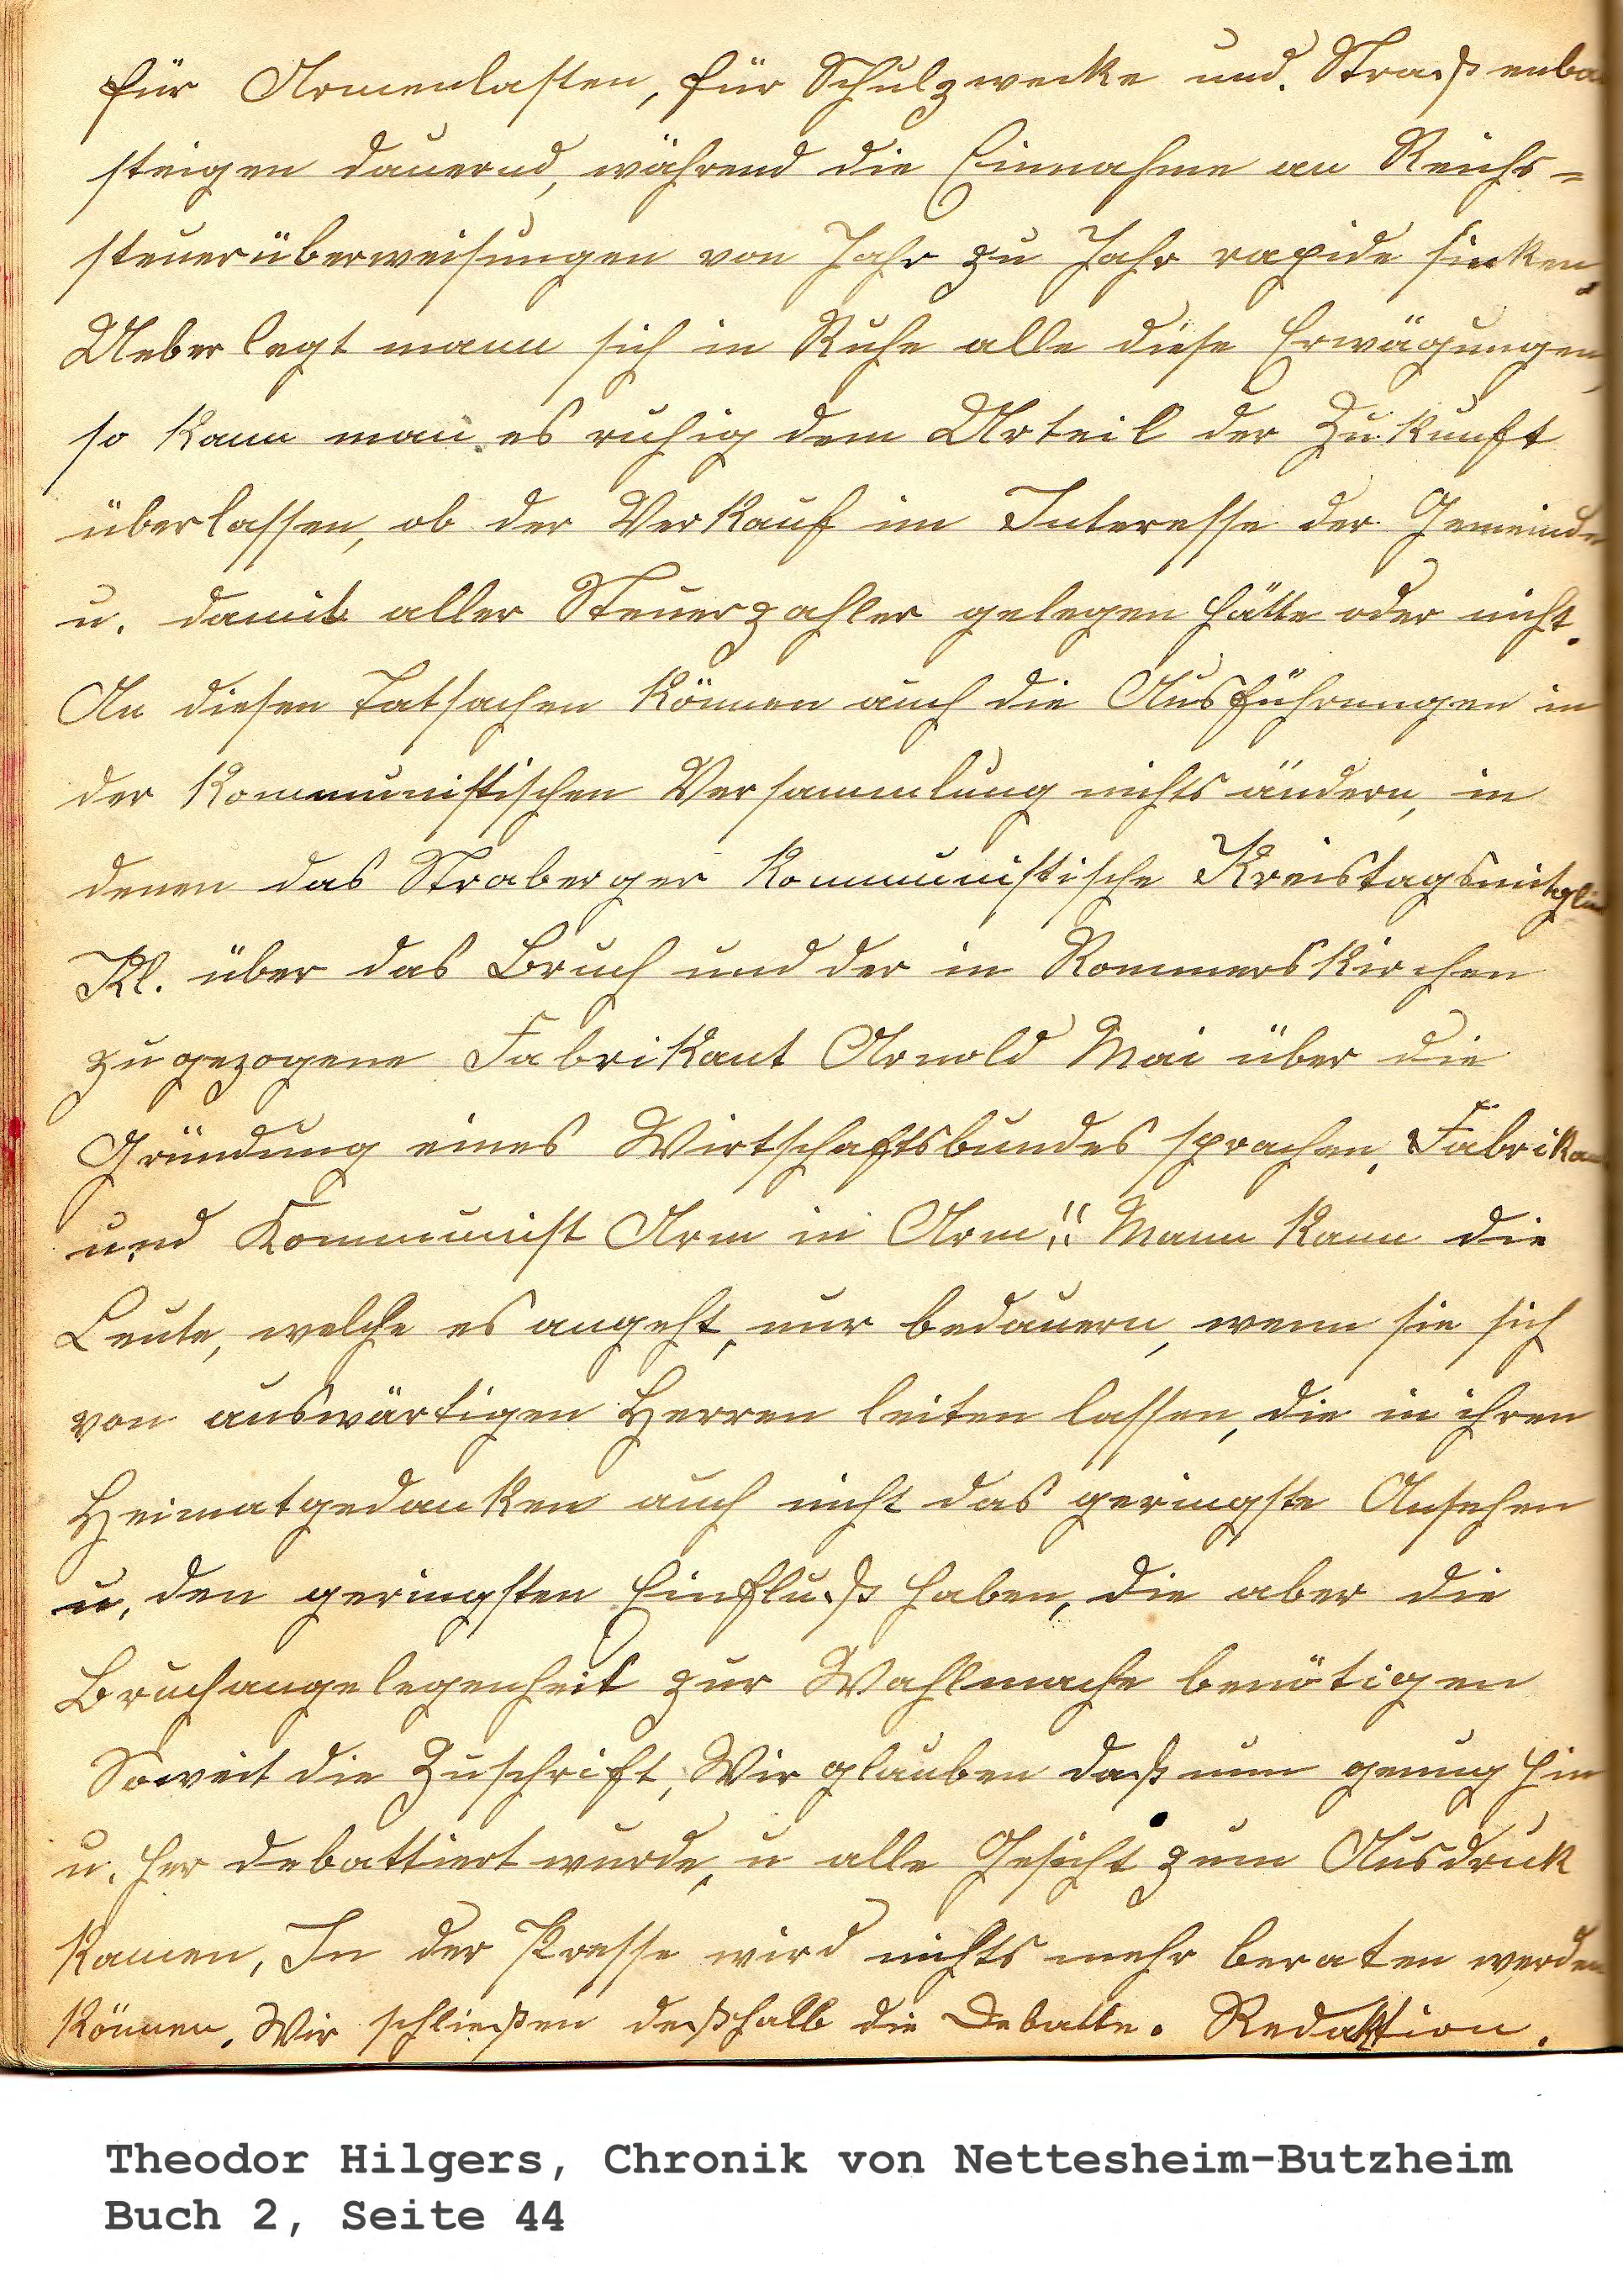 für Armenlasten, für Schulzwecke und. Straßenba
steigen dauernd, während die Einnahme an Reichs=
steuerüberweisungen von Jahr zu Jahr rapide sinken.
Ueberlegt mann sich in Ruhe alle diese Erwägungen,
so kann man es ruhig dem Urteil der Zukunft
überlassen, ob der Verkauf im Interesse der Gemeinde
u. damit aller Steuerzahler gelegen hätte oder nicht.
An diesen Tatsachen können auch die Ausführungen in
der Kommunistischen Versammlung nichts ändern, in
denen das Straberger Kommunistische Kreistagsmitglied
Kl. über das Bruch und der in Rommerskirchen
zugezogene Fabrikant Arnold Mai über die
Gründung eines Wirtschaftsbundes sprachen, Fabrikan
und Kommunist Arm in Arm!! Mann kann die
Leute, welche es angeht, nur bedauern, wenn sie sich
von auswärtigen Herren leiten lassen, die in ihren
Heimatgedanken auch nicht das geringste Ansehen
u. den geringsten Einfluß haben, die aber die
Bruchangelegenheit zur Wahlmache benötigen
Soweit die Zuschrift, Wir glauben daß nun genug hin
u. her debattiert wurde, u alle Gesicht zum Ausdruck
kamen, In der Presse wird nichts mehr beraten werden
können. Wir schließen deßhalb die Debatte. Redaktion.
Theodor Hilgers, Chronik von Nettesheim-Butzheim
Buch 2, Seite 44